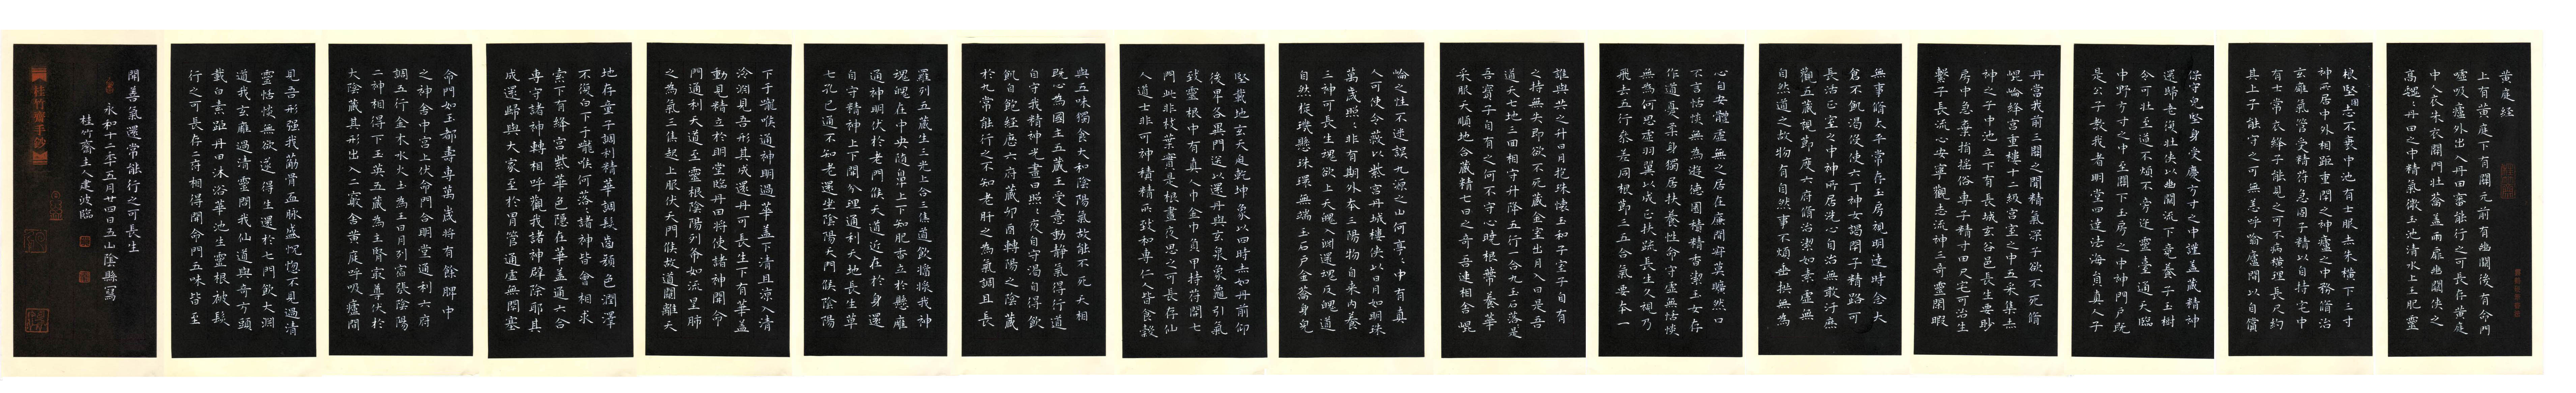 黃庭經
上有黃庭下有關元前有幽闕後有命門
噓吸廬外出入丹田審能行之可長存黃庭
中人衣朱衣關門壯籥蓋兩扉幽闕俠之
高巍〻丹田之中精氣微玉池清水上生肥靈
根堅固志不衰中池有士服赤朱橫下三寸
神所居中外相距重閉之神廬之中務脩治
玄廱氣管受精符急固子精以自持宅中
有士常衣絳子能見之可不病橫理長尺約
其上子能守之可無恙呼噏廬間以自償
保守完堅身受慶方寸之中謹蓋藏精神
還歸老復壯俠以幽闕流下竟養子玉樹
令可壯至道不煩不旁迕靈臺通天臨
中野方寸之中至關下玉房之中神門戶既
是公子教我者明堂四達法海員真人子
丹當我前三關之間精氣深子欲不死脩
崐崘絳宮重樓十二級宮室之中五采集赤
神之子中池立下有長城玄谷邑長生要眇
房中急棄捐搖俗專子精寸田尺宅可治生
繫子長流心安寧觀志流神三奇靈閑暇
無事脩太平常存玉房視明達時念大
倉不飢渴役使六丁神女謁閉子精路可
長活正室之中神所居洗心自治無敢汙歷
觀五藏視節度六府脩治潔如素虛無
自然道之故物有自然事不煩垂拱無為
心自安體虛無之居在廉間寂莫曠然口
不言恬惔無為遊德園積精香潔玉女存
作道憂柔身獨居扶養性命守虛無恬惔
無為何思慮羽翼以成正扶疏長生久視乃
飛去五行參差同根節三五合氣要本一
誰與共之升日月抱珠懷玉和子室子自有
之持無失即欲不死藏金室出月入日是吾
道天七地三回相守升降五行一合九玉石落〻是
吾寶子自有之何不守心曉根蒂養華
采服天順地合藏精七日之奇吾連相舍崐
崘之性不迷誤九源之山何亭〻中有真
人可使令蔽以紫宮丹城樓俠以日月如明珠
萬歲照〻非有期外本三陽物自來內養
三神可長生魂欲上天魄入淵還魂反魄道
自然旋璣懸珠環無端玉石戶金籥身完
堅載地玄天迫乾坤象以四時赤如丹前仰
後卑各異門送以還丹與玄泉象龜引氣
致靈根中有真人巾金巾負甲持符開七
門此非枝葉實是根晝夜思之可長存仙
人道士非可神積精所致和專仁人皆食穀
與五味獨食大和陰陽氣故能不死天相
既心為國主五藏王受意動靜氣得行道
自守我精神光晝日照〻夜自守渴自得飲
飢自飽經歷六府藏卯酉轉陽之陰藏
於九常能行之不知老肝之為氣調且長
羅列五藏生三光上合三焦道飲漿我神
魂魄在中央隨鼻上下知肥香立於懸廱
通神明伏於老門候天道近在於身還
自守精神上下開分理通利天地長生草
七孔已通不知老還坐陰陽天門候陰陽
下于嚨喉通神明過華蓋下清且涼入清
泠淵見吾形其成還丹可長生下有華蓋
動見精立於明堂臨丹田將使諸神開命
門通利天道至靈根陰陽列布如流星肺
之為氣三焦起上服伏天門候故道闚離天
地存童子調利精華調髮齒顏色潤澤
不復白下于嚨喉何落〻諸神皆會相求
索下有絳宮紫華色隱在華蓋通六合
專守諸神轉相呼觀我諸神辟除耶其
成還歸與大家至於胃管通虛無閉塞
命門如玉都壽專萬歲將有餘脾中
之神舍中宮上伏命門合明堂通利六府
調五行金木水火土為王日月列宿張陰陽
二神相得下玉英五藏為主腎最尊伏於
大陰藏其形出入二竅舍黃庭呼吸廬間
見吾形强我筋骨血脉盛怳惚不見過清
靈恬惔無欲遂得生還於七門飲大淵
道我玄廱過清靈問我仙道與奇方頭
載白素距丹田沐浴華池生靈根被髮
行之可長存二府相得開命門五味皆至
開善氣還常能行之可長生
永和十二年五月廿四日五山陰縣寫
桂竹齋主人建波臨
桂竹齋手鈔